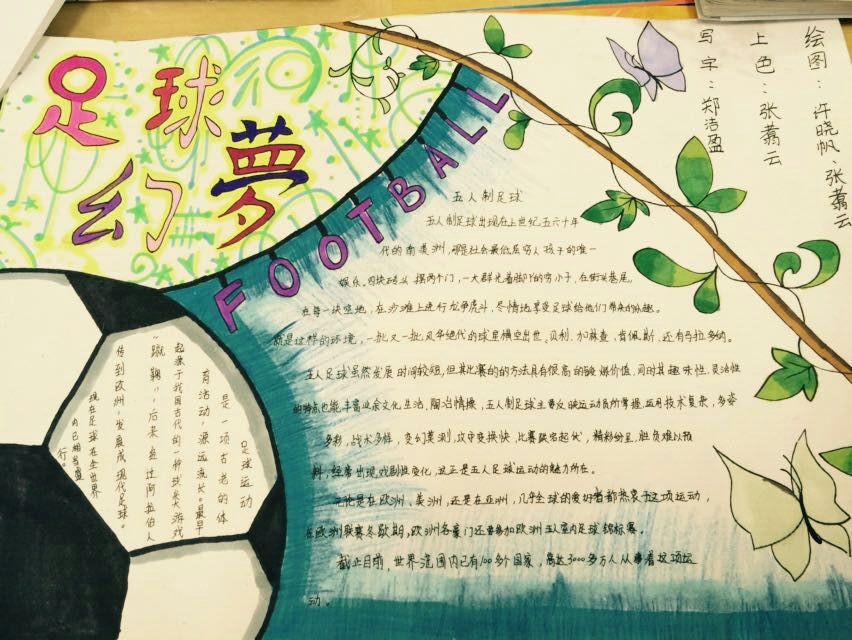 足球
幻夢
FOOTBALL
绘图：许晓帆、张翥云
上色：张翥云
写字：郑洁盈
五人制足球
五人制足球出现在上世纪五六十年
代的南美洲，那是社会最低层穷人孩子的唯一
娱乐。四块砖头摆两个门，一大群光着脚丫的穷小子，在街头巷尾。
在每一块空地，在沙滩上进行龙争虎斗，尽情地享受足球给他们带来的乐趣。
就是这样的环境，一批又一批风华绝代的球星横空出世。贝利、加林查、肯佩斯、还有马拉多纳。
五人足球虽然发展时间较短，但其比赛的的方法具有很高的锻炼价值，同时其趣味性、灵活性
的特点也能丰富业余文化生活、陶冶情操，五人制足球主要反映运动员所掌握、运用技术复杂，多姿
多彩，战术多样，变幻莫测，攻守变换快，比赛跌宕起伏，精彩纷呈，胜负难以预
料，经常出现戏剧性变化，这正是五人足球运动的魅力所在。
无论是在欧洲、美洲，还是在亚洲，几乎全球的爱好者都热衷于这项运动，
在欧洲联赛冬歇期，欧洲各豪门还要参加欧洲五人室内足球锦标赛。
截止目前，世界范围内已有100多个国家，高达3000多万人从事着这项运
动。
足球运动
是一项古老的体
育活动，源远流长。最早
起源于我国古代的一种球类游戏
“蹴鞠”，后来经过阿拉伯人
传到欧洲，发展成现代足球。
现在足球在全世界
内已相当盛
行。